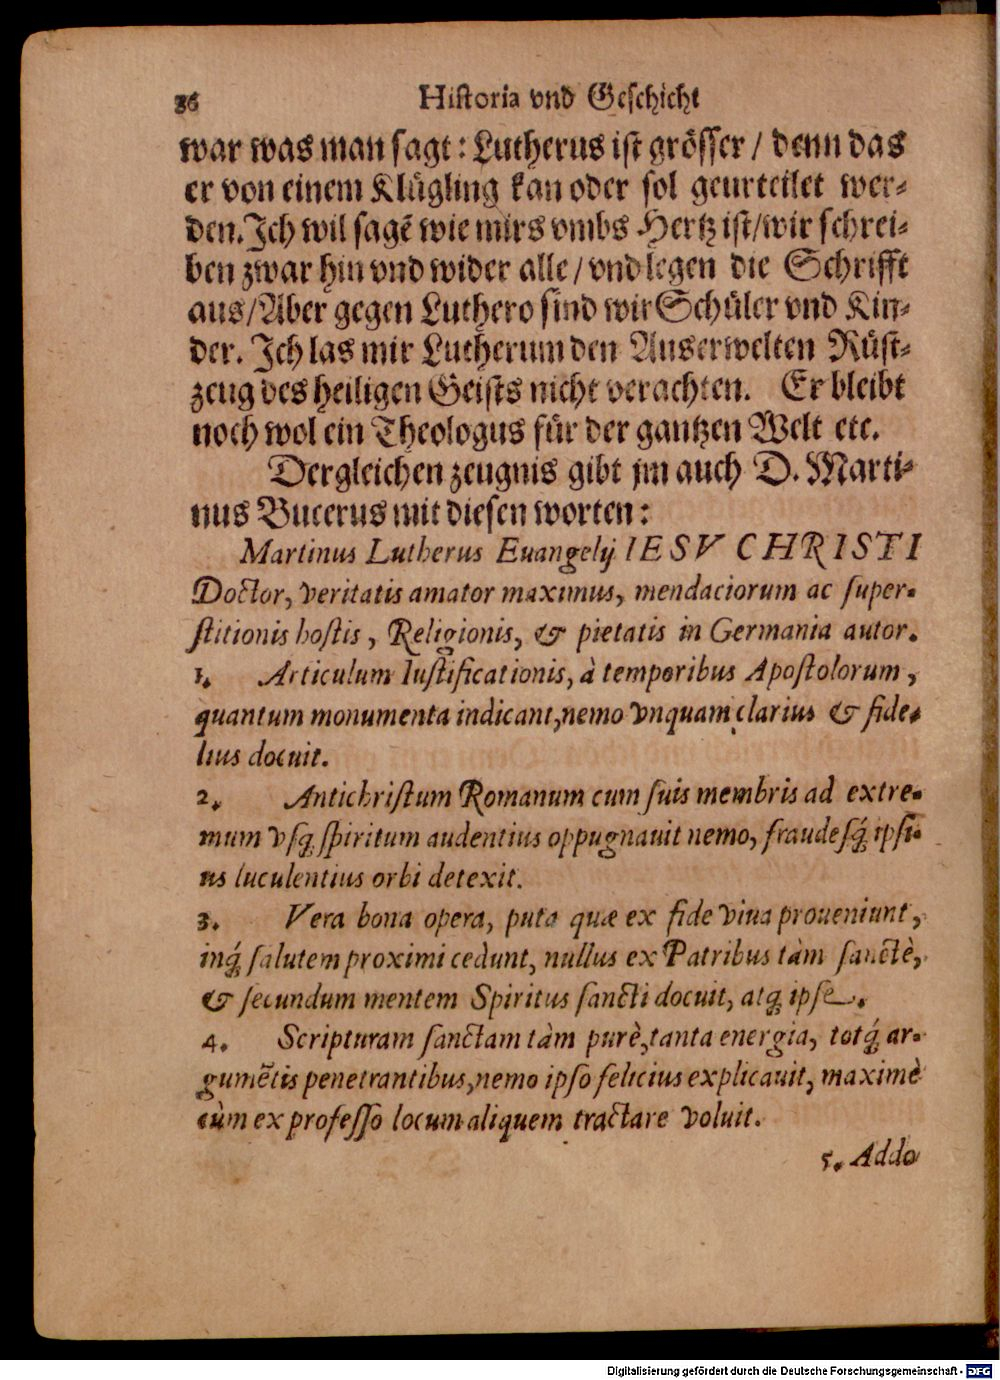 36 Historia vnd Geschicht
war was man sagt: Lutherus ist grösser / denn das
er von einem Klügling kan oder sol geurteilet wer-
den. Ich wil sagē wie mirs vmbs Hertz ist/wir schrei-
ben zwar hin vnd wider alle / vnd legen die Schrifft
aus/Aber gegen Luthero sind wir Schüler vnd Kin-
der. Ich las mir Lutherum den Auserwelten Rüst-
zeug des heiligen Geists nicht verachten. Er bleibt
noch wol ein Theologus für der gantzen Welt etc.
Dergleichen zeugnis gibt jm auch D. Marti-
nus Bucerus mit diesen worten:
Martinus Lutherus Euangelij IESV CHRISTI
Doctor, veritatis amator maximus, mendaciorum ac super-
ſtitionis hoſtis, Religionis, & pietatis in Germania autor.
1. Articulum Iuſtificationis, à temporibus Apoſtolorum,
quantum monumenta indicant, nemo vnquam clarius & fide-
lius docuit.
2. Antichriſtum Romanum cum ſuis membris ad extre-
mum vſq; ſpiritum audentius oppugnauit nemo, fraudeſq́; ipſi-
us luculentius orbi detexit.
3. Vera bona opera, puta quæ ex fide viua proueniunt,
inq́; ſalutem proximi cedunt, nullus ex Patribus tàm ſanctè,
& ſecundum mentem Spiritus ſancti docuit, atq; ipſe.
4. Scripturam ſanctam tàm purè, tanta energia, totq́; ar-
gumētis penetrantibus, nemo ipſo felicius explicauit, maximè
cùm ex profeſſo locum aliquem tractare voluit.
5. Addo
Digitalisierung gefördert durch die Deutsche Forschungsgemeinschaft - DFG